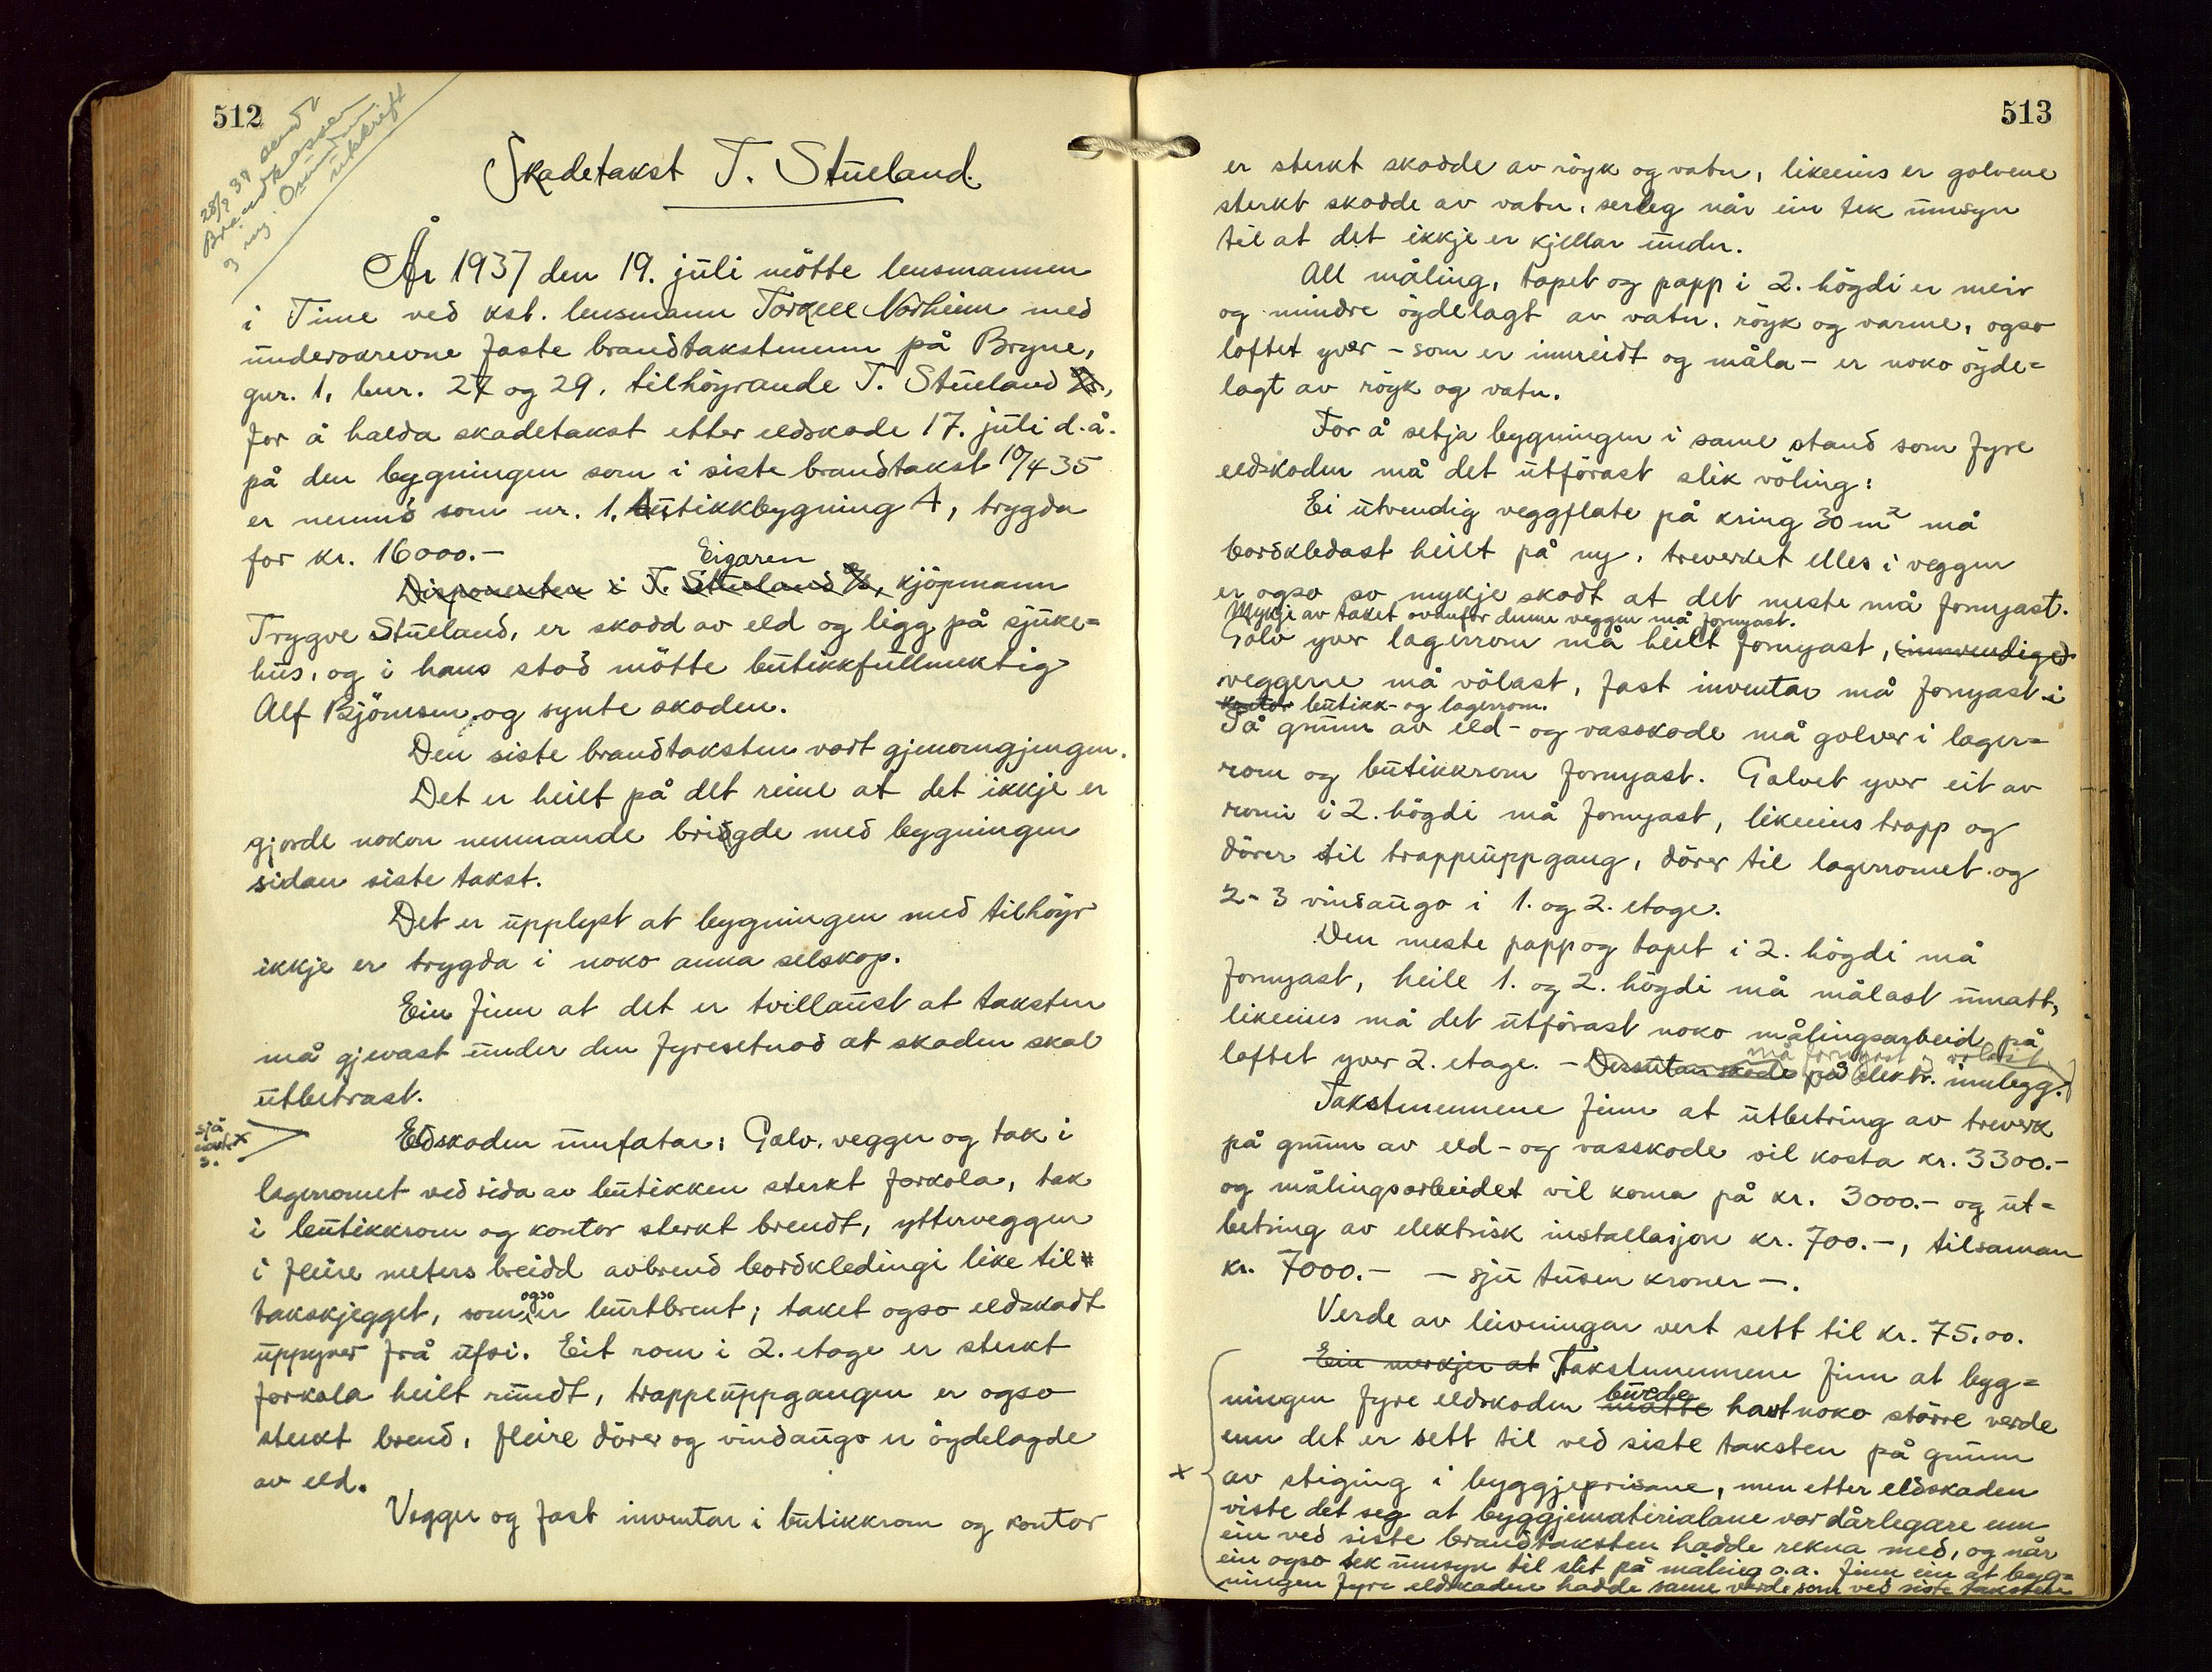 512
28/7 37 sendt
Brandkassen
3 eks. utskrift
Skadetakst T. Stueland.
År 1937 den 19. juli møtte lensmannen
i Time ved kst. lensmann Torkell Norheim med
underskrevne faste brandtakstmenn på Bryne,
gnr. 1, bnr. 27 og 29, tilhøyrande T. Stueland A/S,
for å halda skadetakst etter eldskade 17. juli d.å.
på den bygningen som i siste brandtakst 10/4 35
er nemnd som nr. 1, butikkbygning A, trygda
for kr. 16000.-
Eigaren
Disponenten i T. Stueland A/S, kjøpmann
Trygve Stueland, er skadd av eld og ligg på sjuke=
hus, og i hans stad møtte butikkfullmektig
Alf Bjørnsen og synte skaden.
Den siste brandtaksten vart gjenomgjengen.
Det er heilt på det reine at det ikkje er
gjorde nokon nemnande bridgde med bygningen
sidan siste takst.
Det er upplyst at bygningen med tilhøyr
ikkje er trygda i noko anna selskap.
Ein finn at det er tvillaust at taksten
må gjevast under den fyresetnad at skaden skal
utbetrast.
sjå
neste x
s.
Eldskaden umfatar: Golv, vegger og tak i
lagerromet ved sida av butikken sterkt forkola, tak
i butikkrom og kontor sterkt brendt, ytterveggen
i fleire meters breidd avbrend bordkledingi like til
takskjegget, som ogso er burtbrent; taket ogso eldskadt
uppyver frå ufsi. Eit rom i 2. etage er sterkt
forkola heilt rundt, trappeuppgangen er ogso
sterkt brend, fleire dører og vindaugo er øydelagde
av eld.
Vegger og fast inventar i butikkrom og kontor
513
er sterkt skadde av røyk og vatn, likeeins er golvene
sterkt skadde av vatn, serleg når ein tek umsyn
til at det ikkje er kjellar under.
All måling, tapet og papp i 2. høgdi er meir
og mindre øydelagt av vatn, røyk og varme, ogso
loftet yver - som er innreidt og måla - er noko øyde=
lagt av røyk og vatn.
For å setja bygningen i same stand som fyre
eldskaden må det utførast slik vøling:
Ei utvendig veggflate på kring 30 m² må
bordkledast heilt på ny, treverket elles i veggen
er ogso so mykje skadt at det meste må fornyast.
Mykje av taket ovanfor denne veggen må fornyast.
Golv yver lagerrom må heilt fornyast, (innvendige)
veggerne må vølast, fast inventar må fornyast i
kontor butikk- og lagerrom.
På grunn av eld- og vasskade må golver i lager=
rom og butikkrom fornyast. Golvet yver eit av
romi i 2. høgdi må fornyast, likeeins trapp og
dører til trappeuppgang, dører til lagerromet og
2-3 vindaugo i 1. og 2. etage.
Den meste papp og tapet i 2. høgdi må
fornyast, heile 1. og 2. høgdi må målast umatt,
likeeins må det utførast noko målingsarbeid på
må fornyast
loftet yver 2. etage. - Dessutan skade på elektr. innlegg.
Takstmennene finn at utbetring av treverk
på grunn av eld- og vasskade vil kosta kr. 3300.-
og målingsarbeidet vil koma på kr. 3000.- og ut=
betring av elektrisk installasjon kr. 700.-, tilsaman
kr. 7000.- - sju tusen kroner -.
Verde av leivningar vert sett til kr. 75,00.
Ein merkjer at Takstmennene finn at byg=
burde
ningen fyre eldskaden måtte havt noko større verde
enn det er sett til ved siste taksten på grunn
x av stiging i byggjeprisane, men etter eldskaden
viste det seg at byggjematerialane var dårlegare enn
ein ved siste brandtaksten hadde rekna med, og når
ein ogso tek umsyn til slit på måling o.a. finn ein at byg=
ningen fyre eldskaden hadde same verde som ved siste taksten